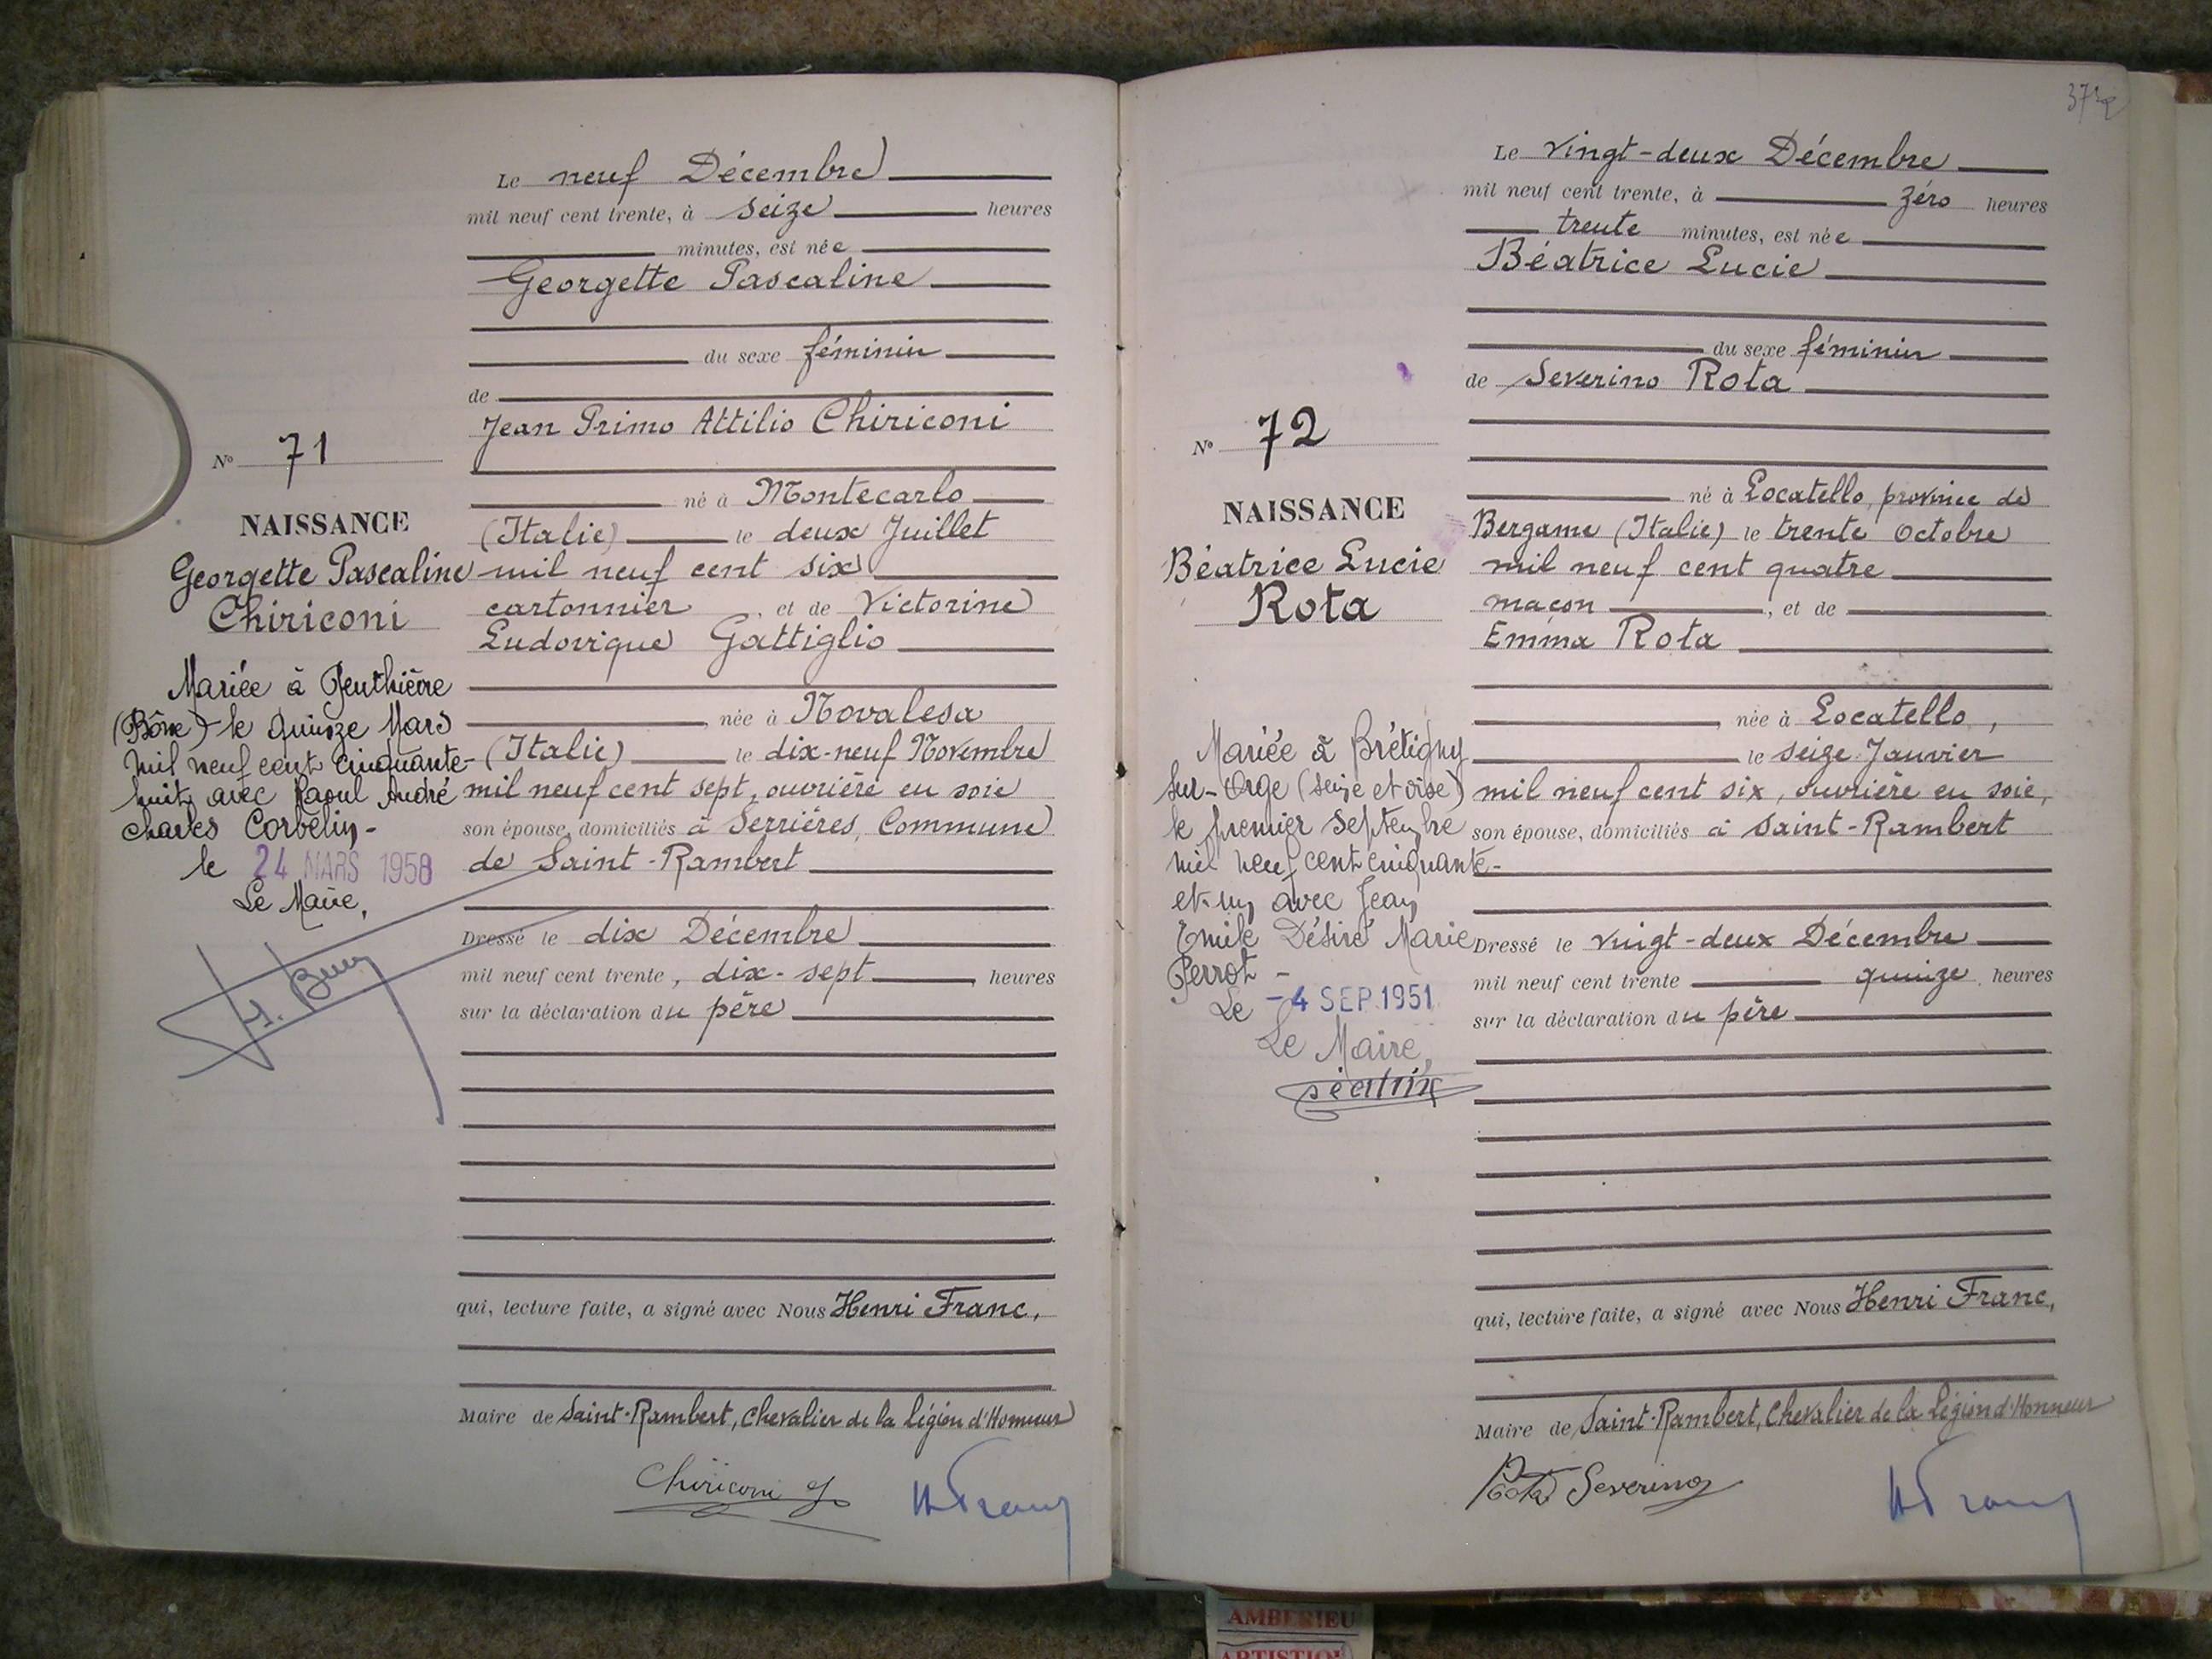 Le neuf Décembre
mil neuf cent trente, à seize heures
minutes, est née
Georgette Pascaline
du sexe féminin
de
Jean Primo Attilio Chiriconi
né à Montecarlo
(Italie) le deux Juillet
mil neuf cent six
cartonnier, et de Victorine
Ludovique Gattiglio
née à Novalesa
(Italie) le dix-neuf Novembre
mil neuf cent sept, ouvrière en soie
son épouse, domiciliés à Serrières, Commune
de Saint-Rambert
Dressé le dix Décembre
mil neuf cent trente, dix-sept heures
sur la déclaration du père
qui, lecture faite, a signé avec Nous Henri Franc,
Maire de Saint-Rambert, Chevalier de la Légion d'Honneur
Chiriconi J
H Franc
No 71
NAISSANCE
Georgette Pascaline
Chiriconi
Mariée à Penthièvre
(Bône) le quinze Mars
mil neuf cent cinquante-
huit avec Raoul André
Charles Corbelin-
le 24 MARS 1958
Le Maire,
Le vingt-deux Décembre
mil neuf cent trente, à zéro heures
trente minutes, est née
Béatrice Lucie
du sexe féminin
de Severino Rota
né à Locatello, province de
Bergame (Italie) le trente Octobre
mil neuf cent quatre
maçon, et de
Emma Rota
née à Locatello,
le seize Janvier
mil neuf cent six, ouvrière en soie,
son épouse, domiciliés à Saint-Rambert
Dressé le vingt-deux Décembre
mil neuf cent trente quinze heures
sur la déclaration du père
qui, lecture faite, a signé avec Nous Henri Franc,
Maire de Saint-Rambert, Chevalier de la Légion d'Honneur
Rota Severino
H Franc
No 72
NAISSANCE
Béatrice Lucie
Rota
Mariée à Brétigny
sur-Orge (Seine et Oise)
le premier Septembre
mil neuf cent cinquante-
et-un avec Jean
Emile Désiré Marie
Perrot -
Le -4 SEP. 1951
Le Maire,
AMBERIEU